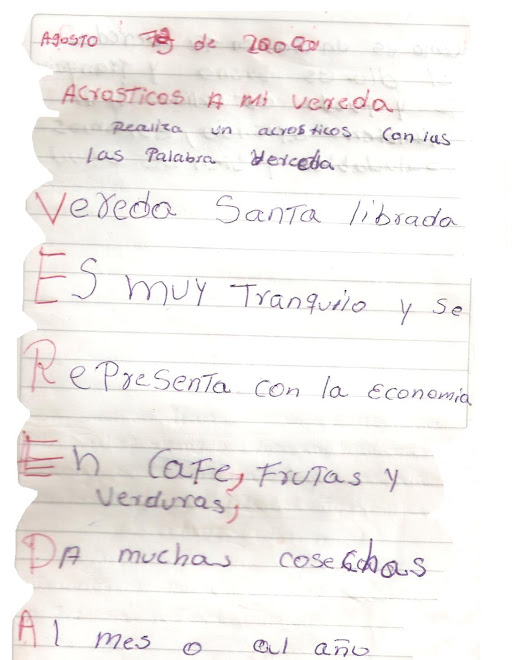 Agosto de
Acrosticos A mi vereda
Realiza un acrosticos con las
las Palabra Vereda
Vereda Santa librada
ES muy Tranquilo y se
Representa con la Economia
En Cafe, Frutas y
Verduras;
DA muchas cosechas
Al mes o al año